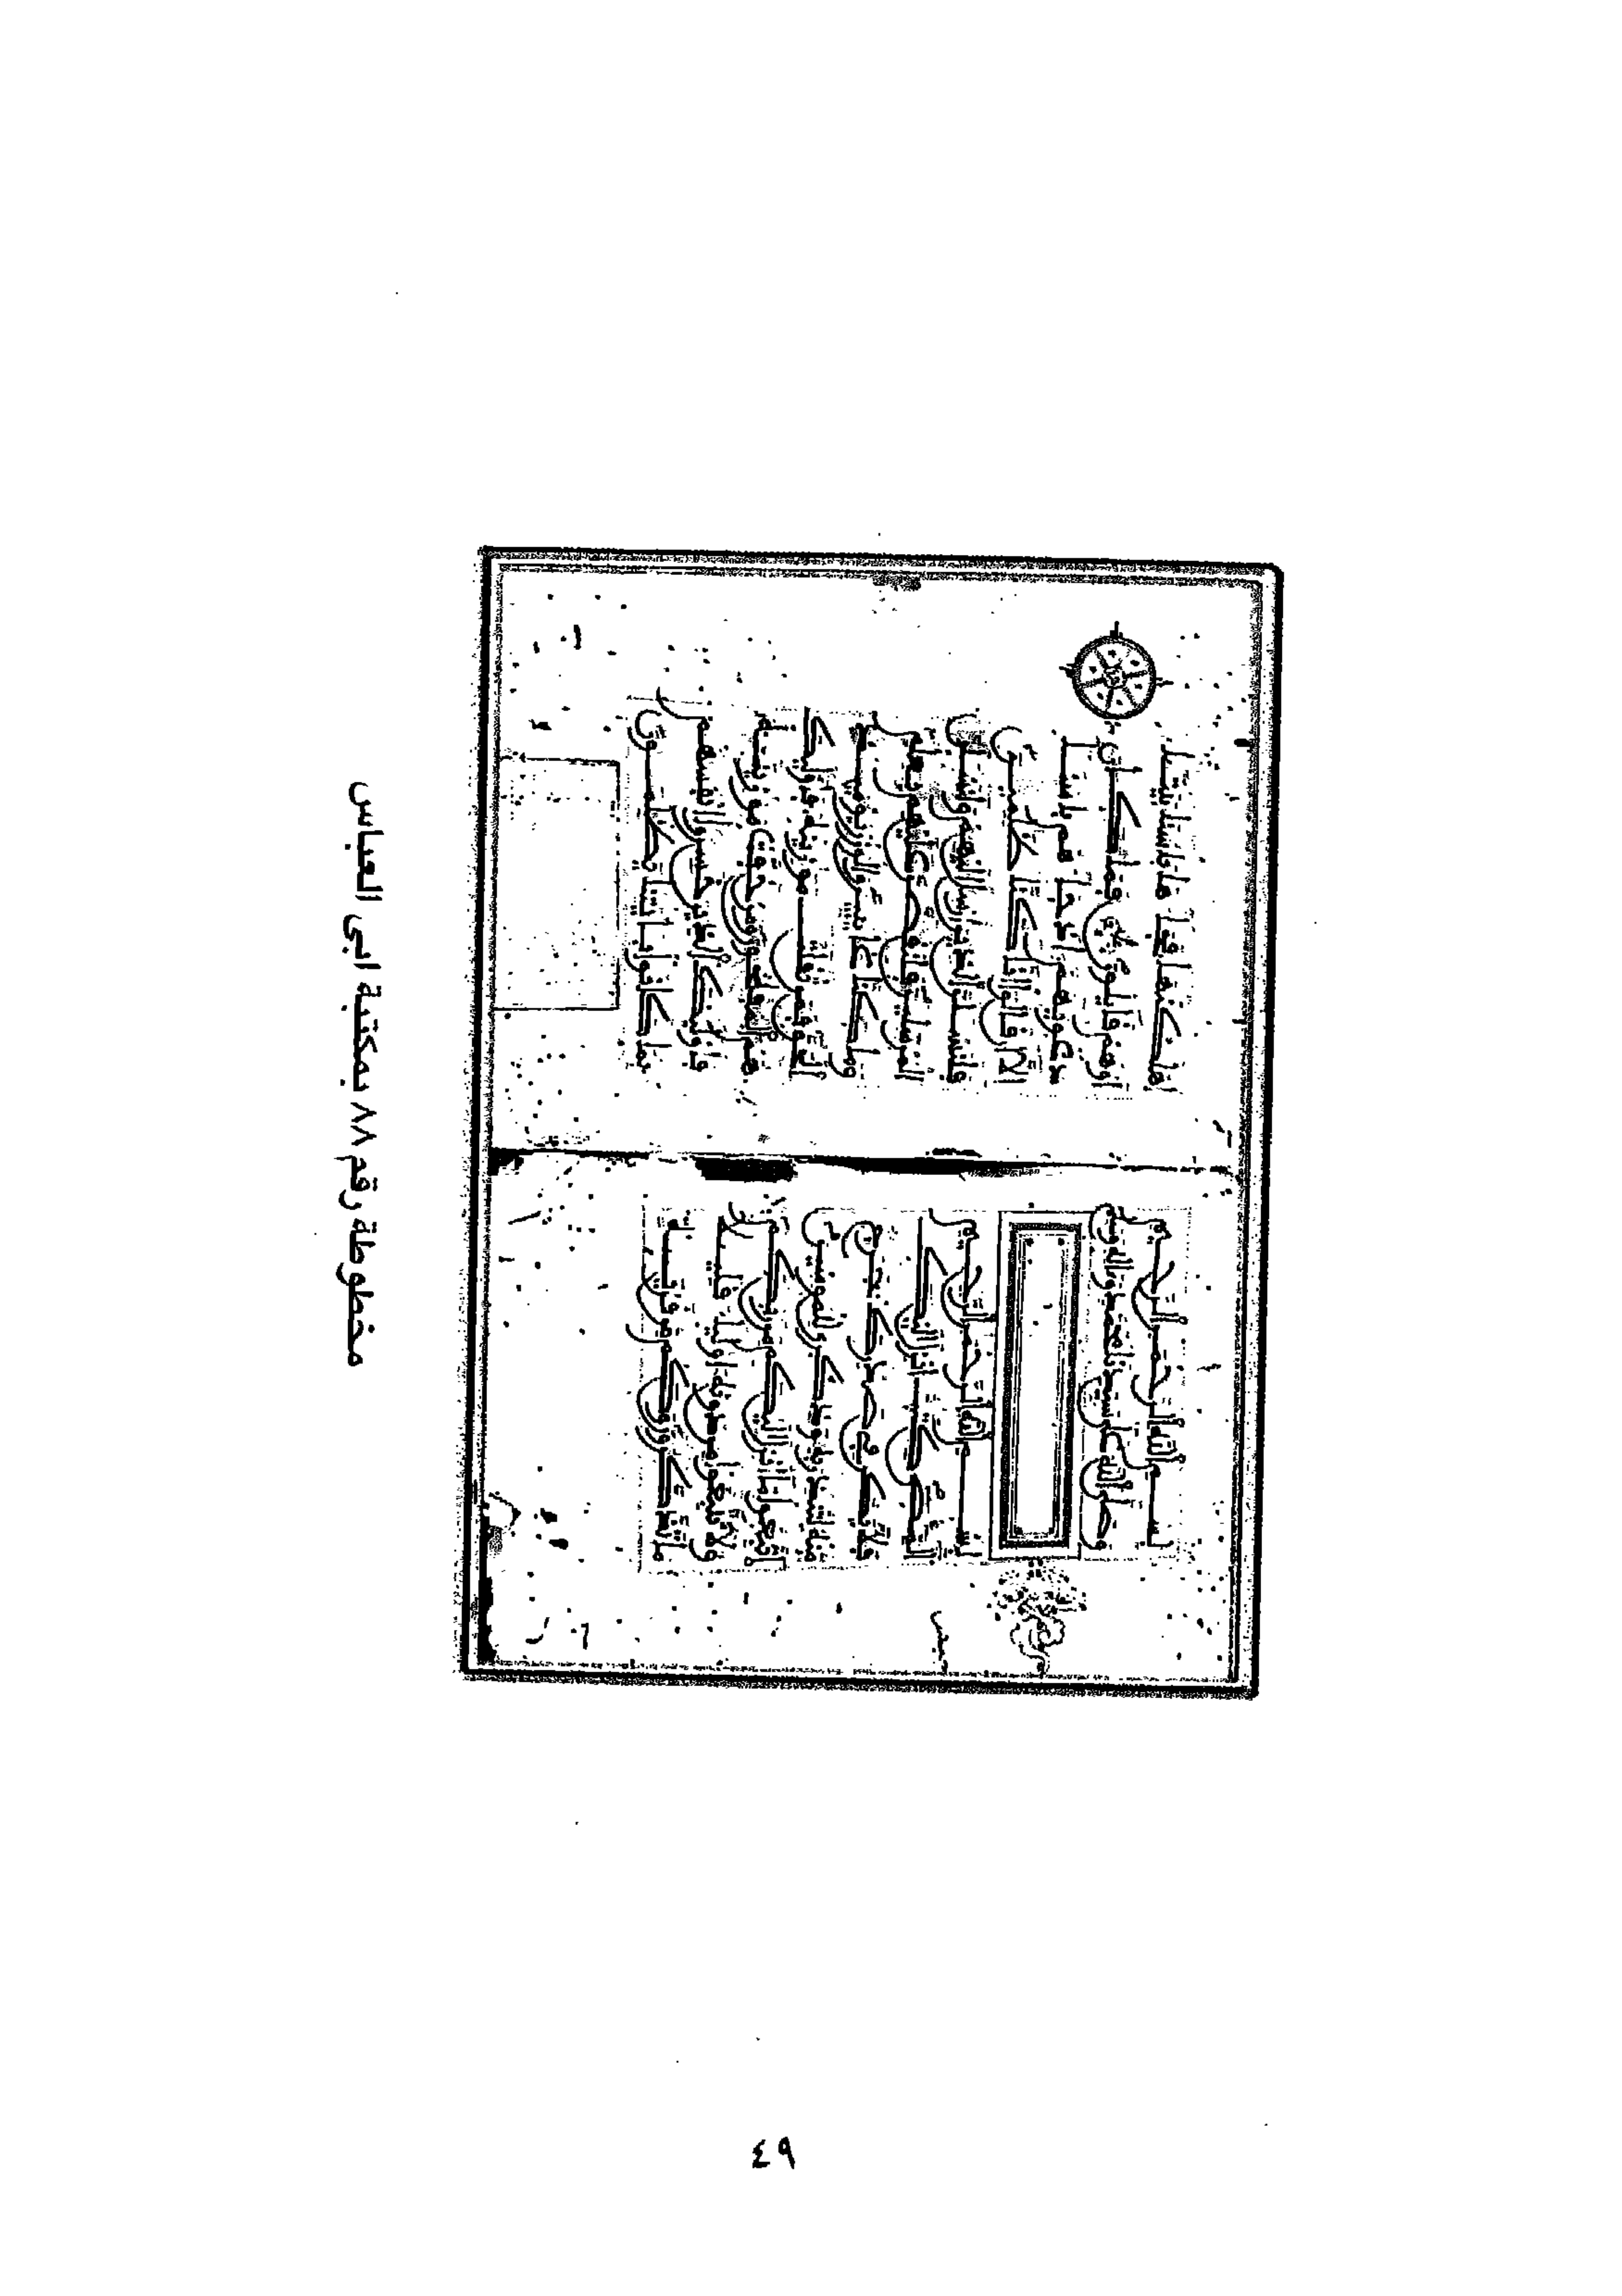 بسم الله الرحمن الرحيم
وصلى الله على سيدنا محمد واله
بسم الله الرحمن الرحيم
المص كتب انزل اليك
فلا يكن في صدرك حرج
منه لتنذر به وذكرى للمومنين
اتبعوا ما انزل اليكم من ربكم
ولا تتبعوا من دونه اولياء قليلا
ما تذكرون وكم من قرية
اهلكنها فجاءها باسنا بيتا
او هم قايلون فما كان
دعويهم اذ جاءهم باسنا
الا ان قالوا انا كنا ظلمين
فلنسئلن الذين ارسل اليهم ولنسئلن
المرسلين فلنقصن عليهم بعلم
وما كنا غايبين والوزن يوميذ
الحق فمن ثقلت موزينه فاوليك
هم المفلحون ومن خفت موزينه
فاوليك الذين خسروا انفسهم
بما كانوا بايتنا يظلمون
مخطوطة رقم ٨٨ بمكتبة ابى العباس
٤٩